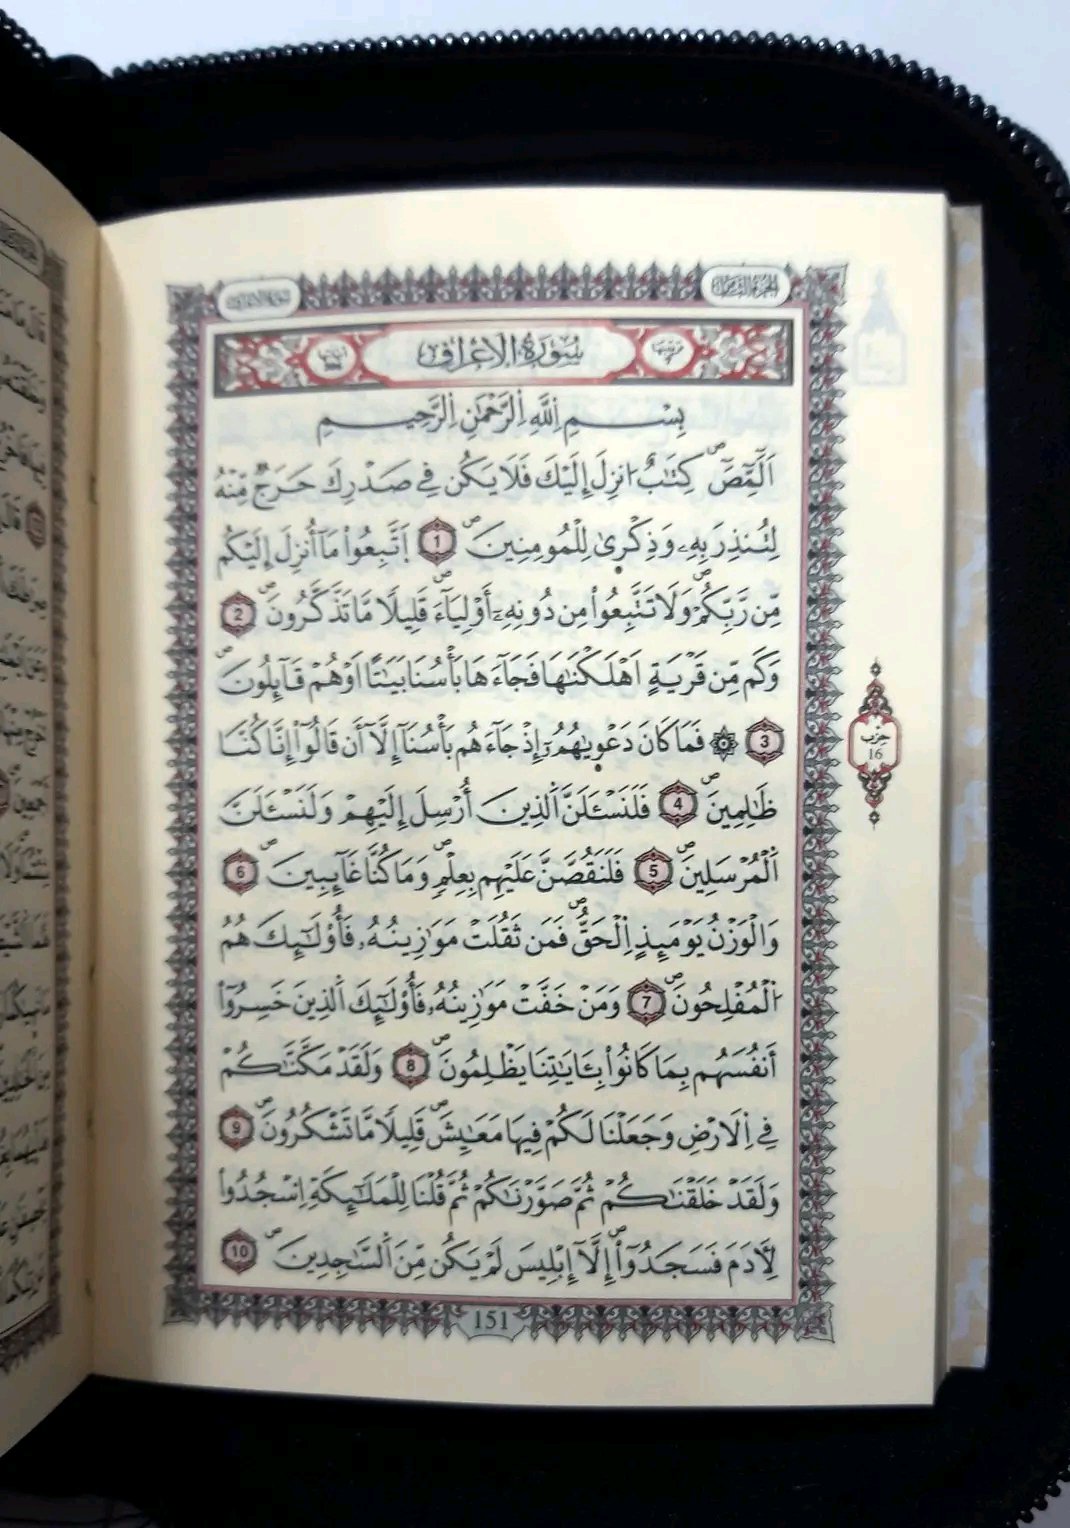 سورة الاعراف
بِسْمِ اِللَّهِ اِلرَّحْمَٰنِ اِلرَّحِيمِ
أَلَٓمِّٓصَٓۖ كِتَٰبٌ ا۟نزِلَ إِلَيْكَ فَلَا يَكُن فِي صَدْرِكَ حَرَجٌ مِّنْهُ
لِتُنذِرَ بِهِۦ وَذِكْر۪ىٰ لِلْمُومِنِينَۖ 1 اَ۪تَّبِعُواْ مَآ أُنزِلَ إِلَيْكُم
مِّن رَّبِّكُمْۖ وَلَا تَتَّبِعُواْ مِن دُونِهِۦٓ أَوْلِيَآءَۖ قَلِيلًا مَّا تَذَّكَّرُونَۖ 2
وَكَم مِّن قَرْيَةٍ اَهْلَكْنَٰهَا فَجَآءَهَا بَأْسُنَا بَيَٰتًا اَوْ هُمْ قَآئِلُونَۖ
3 ۞ فَمَا كَانَ دَعْو۪يٰهُمُۥٓ إِذْ جَآءَهُم بَأْسُنَآ إِلَّآ أَن قَالُوٓاْ إِنَّا كُنَّا
ظَٰلِمِينَۖ 4 فَلَنَسْـَٔلَنَّ اَلذِينَ أُرْسِلَ إِلَيْهِمْ وَلَنَسْـَٔلَنَّ
اَلْمُرْسَلِينَۖ 5 فَلَنَقُصَّنَّ عَلَيْهِم بِعِلْمٍۖ وَمَا كُنَّا غَآئِبِينَۖ 6
وَالْوَزْنُ يَوْمَئِذٍ اِلْحَقُّۖ فَمَن ثَقُلَتْ مَوَٰزِينُهُۥ فَأُوْلَٰٓئِكَ هُمُ
ا۟لْمُفْلِحُونَۖ 7 وَمَنْ خَفَّتْ مَوَٰزِينُهُۥ فَأُوْلَٰٓئِكَ اَلذِينَ خَسِرُوٓاْ
أَنفُسَهُم بِمَا كَانُواْ بِـَٔايَٰتِنَا يَظْلِمُونَۖ 8 وَلَقَدْ مَكَّنَّٰكُمْ
فِي اِلَارْضِ وَجَعَلْنَا لَكُمْ فِيهَا مَعَٰيِشَۖ قَلِيلًا مَّا تَشْكُرُونَۖ 9
وَلَقَدْ خَلَقْنَٰكُمْ ثُمَّ صَوَّرْنَٰكُمْ ثُمَّ قُلْنَا لِلْمَلَٰٓئِكَةِ اِ۟سْجُدُواْ
لِأٓدَمَ فَسَجَدُوٓاْۖ إِلَّآ إِبْلِيسَ لَمْ يَكُن مِّنَ اَلسَّٰجِدِينَۖ 10
151
حزب
16